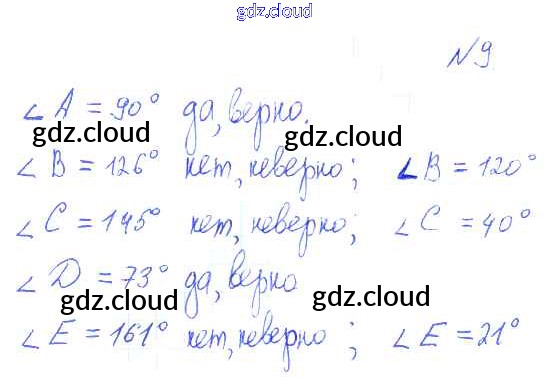 gdz.cloud
№9
∠A = 90° да, верно.
gdz.cloud gdz.cloud
∠B = 126° нет, неверно; ∠B = 120°
∠C = 145° нет, неверно; ∠C = 40°
gdz.cloud gdz.cloud
∠D = 73° да, верно
gdz.cloud gdz.cloud
∠E = 161° нет, неверно; ∠E = 21°